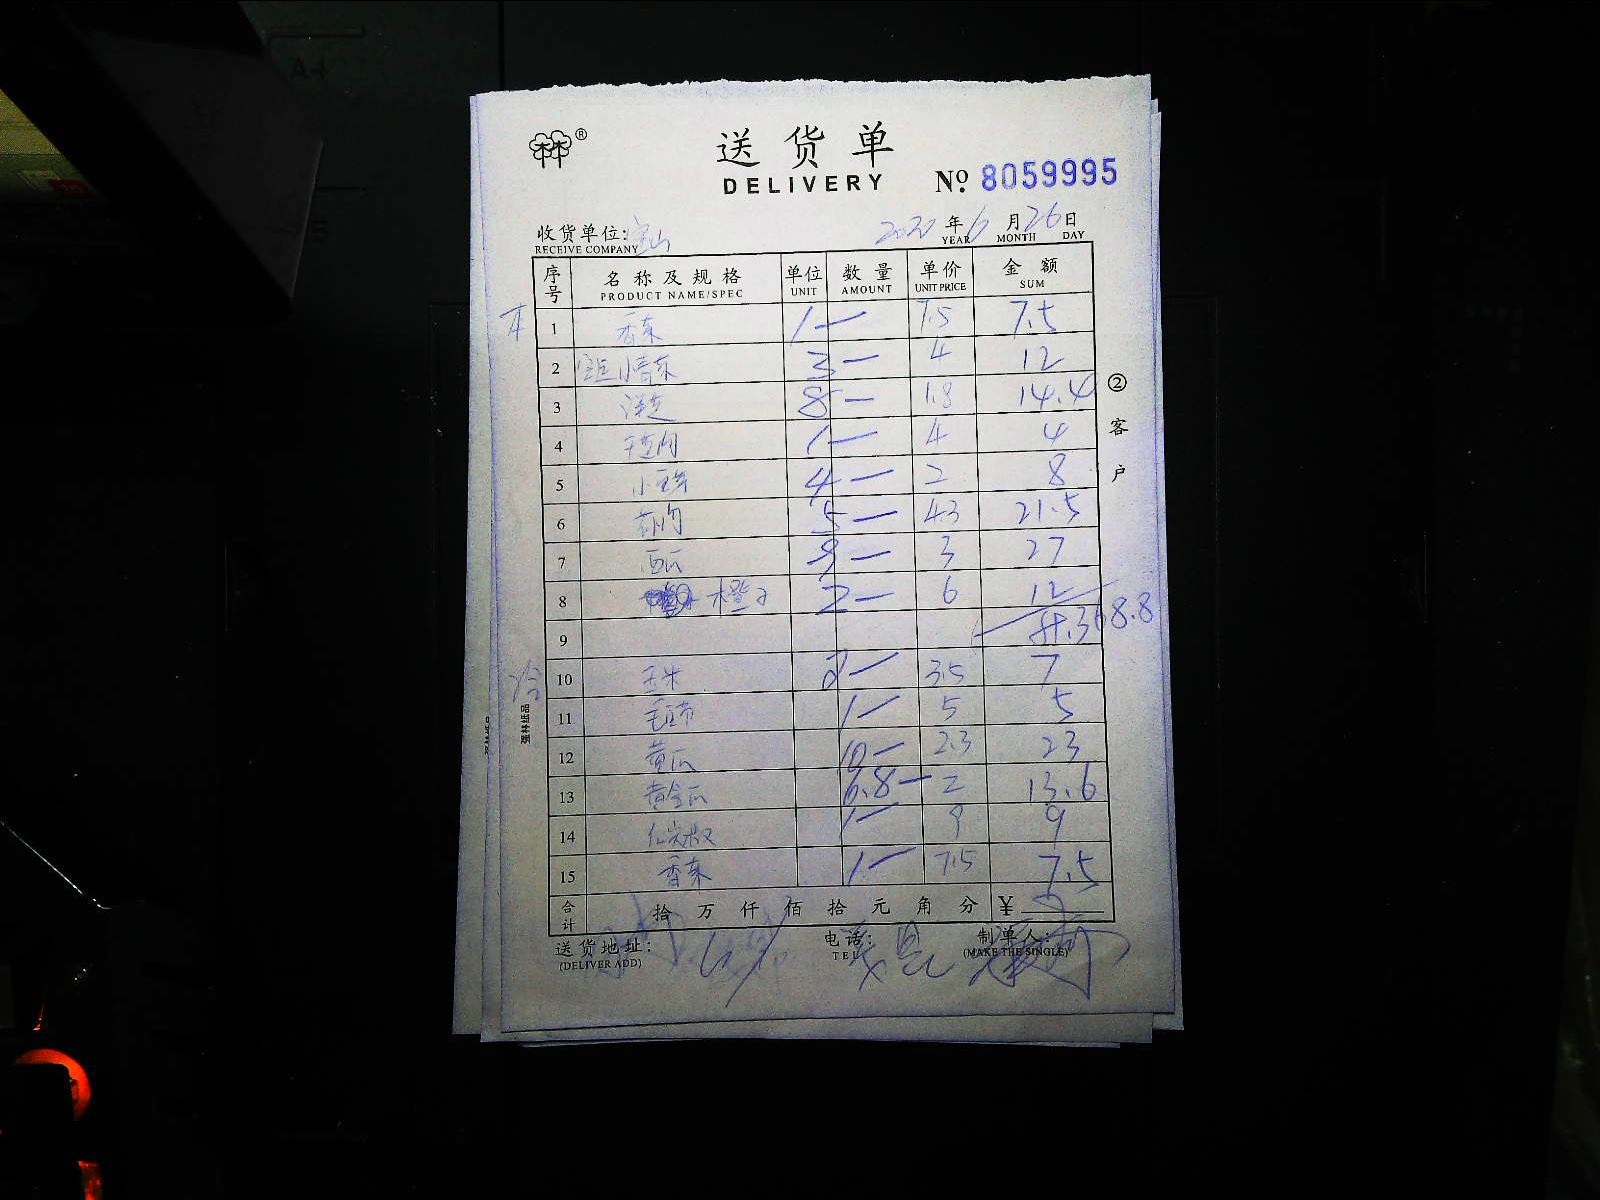 ®
送货单
DELIVERY
No. 8059995
收货单位: 宝山 2020年6月26日
RECEIVE COMPANY YEAR MONTH DAY
序号 名称及规格 单位 数量 单价 金额
PRODUCT NAME/SPEC UNIT AMOUNT UNIT PRICE SUM
1 香菜 1— 7.5 7.5
2 3— 4 12
3 洋芝 8— 1.8 14.4
4 1— 4 4
5 4— 2 8
6 5— 4.3 21.5
7 西瓜 9— 3 27
8 橙子 2— 6 12
9 368.8
10 玉米 2— 3.5 7
11 1— 5 5
12 黄瓜 10— 2.3 23
13 黄金瓜 6.8— 2 13.6
14 1— 9 9
15 香菜 1— 7.5 7.5
合计 拾万仟佰拾元角分 ¥
送货地址: 电话: 制单人:
(DELIVER ADD) TEL (MAKE THE SINGLE)
②客户
强林纸品
A4